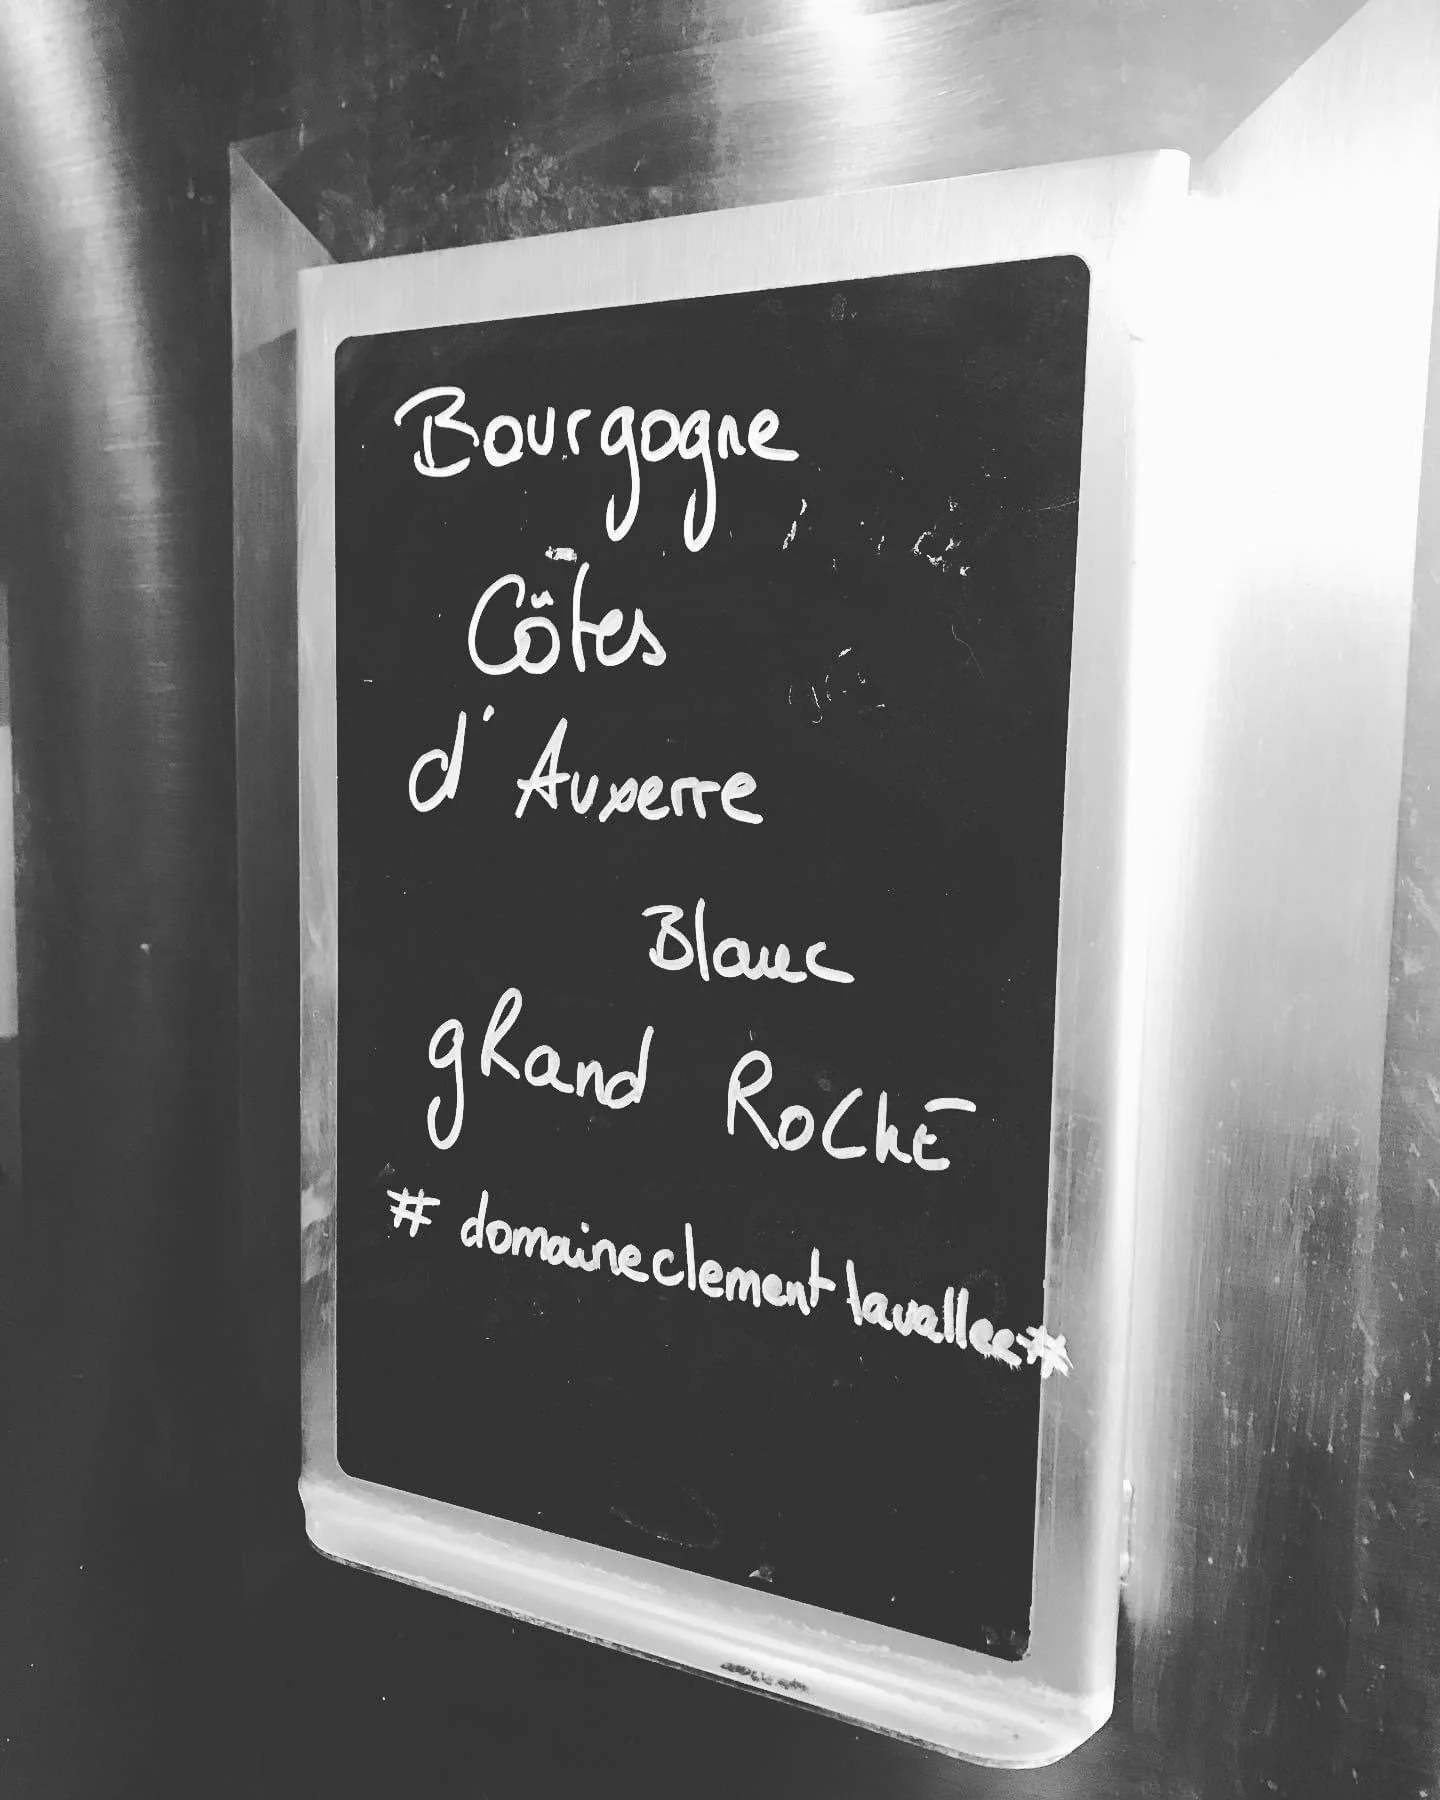 Bourgogne
Côtes
d'Auxerre
Blanc
gRand RoChē
# domaineclementlavallee#